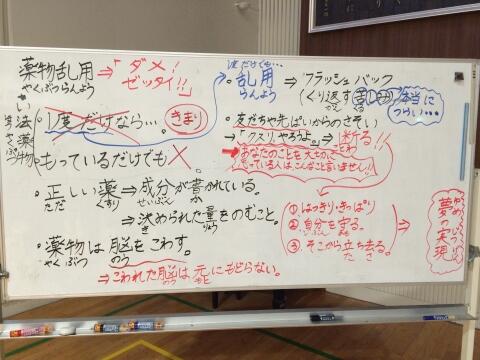 薬物乱用 ⇒「ダメ!
やくぶつらんよう
ゼッタイ!!」
・1度だけなら…。 きまり
もっているだけでも×
・正しい薬⇒成分が書かれている。
ただ くすり せいぶん か
⇒決められた量をのむこと。
き りょう
・薬物は脳をこわす。
やくぶつ のう
⇒こわれた脳は元にもどらない。
のう もと
1度だけでも…
乱用 ⇒ フラッシュバック
らんよう
(くり返す苦しみ) 本当に
つらい…
・友だちや先ぱいからのさそい
→「クスリ、やろうよ。」⇒断る!!
ことわ
あなたのことを大切に
思っている人はこんなこと言いません!!
①はっきり・きっぱり
②自分を守る。
③そこから立ち去る。
た さ
⇒
夢の実現
ゆめ じつげん